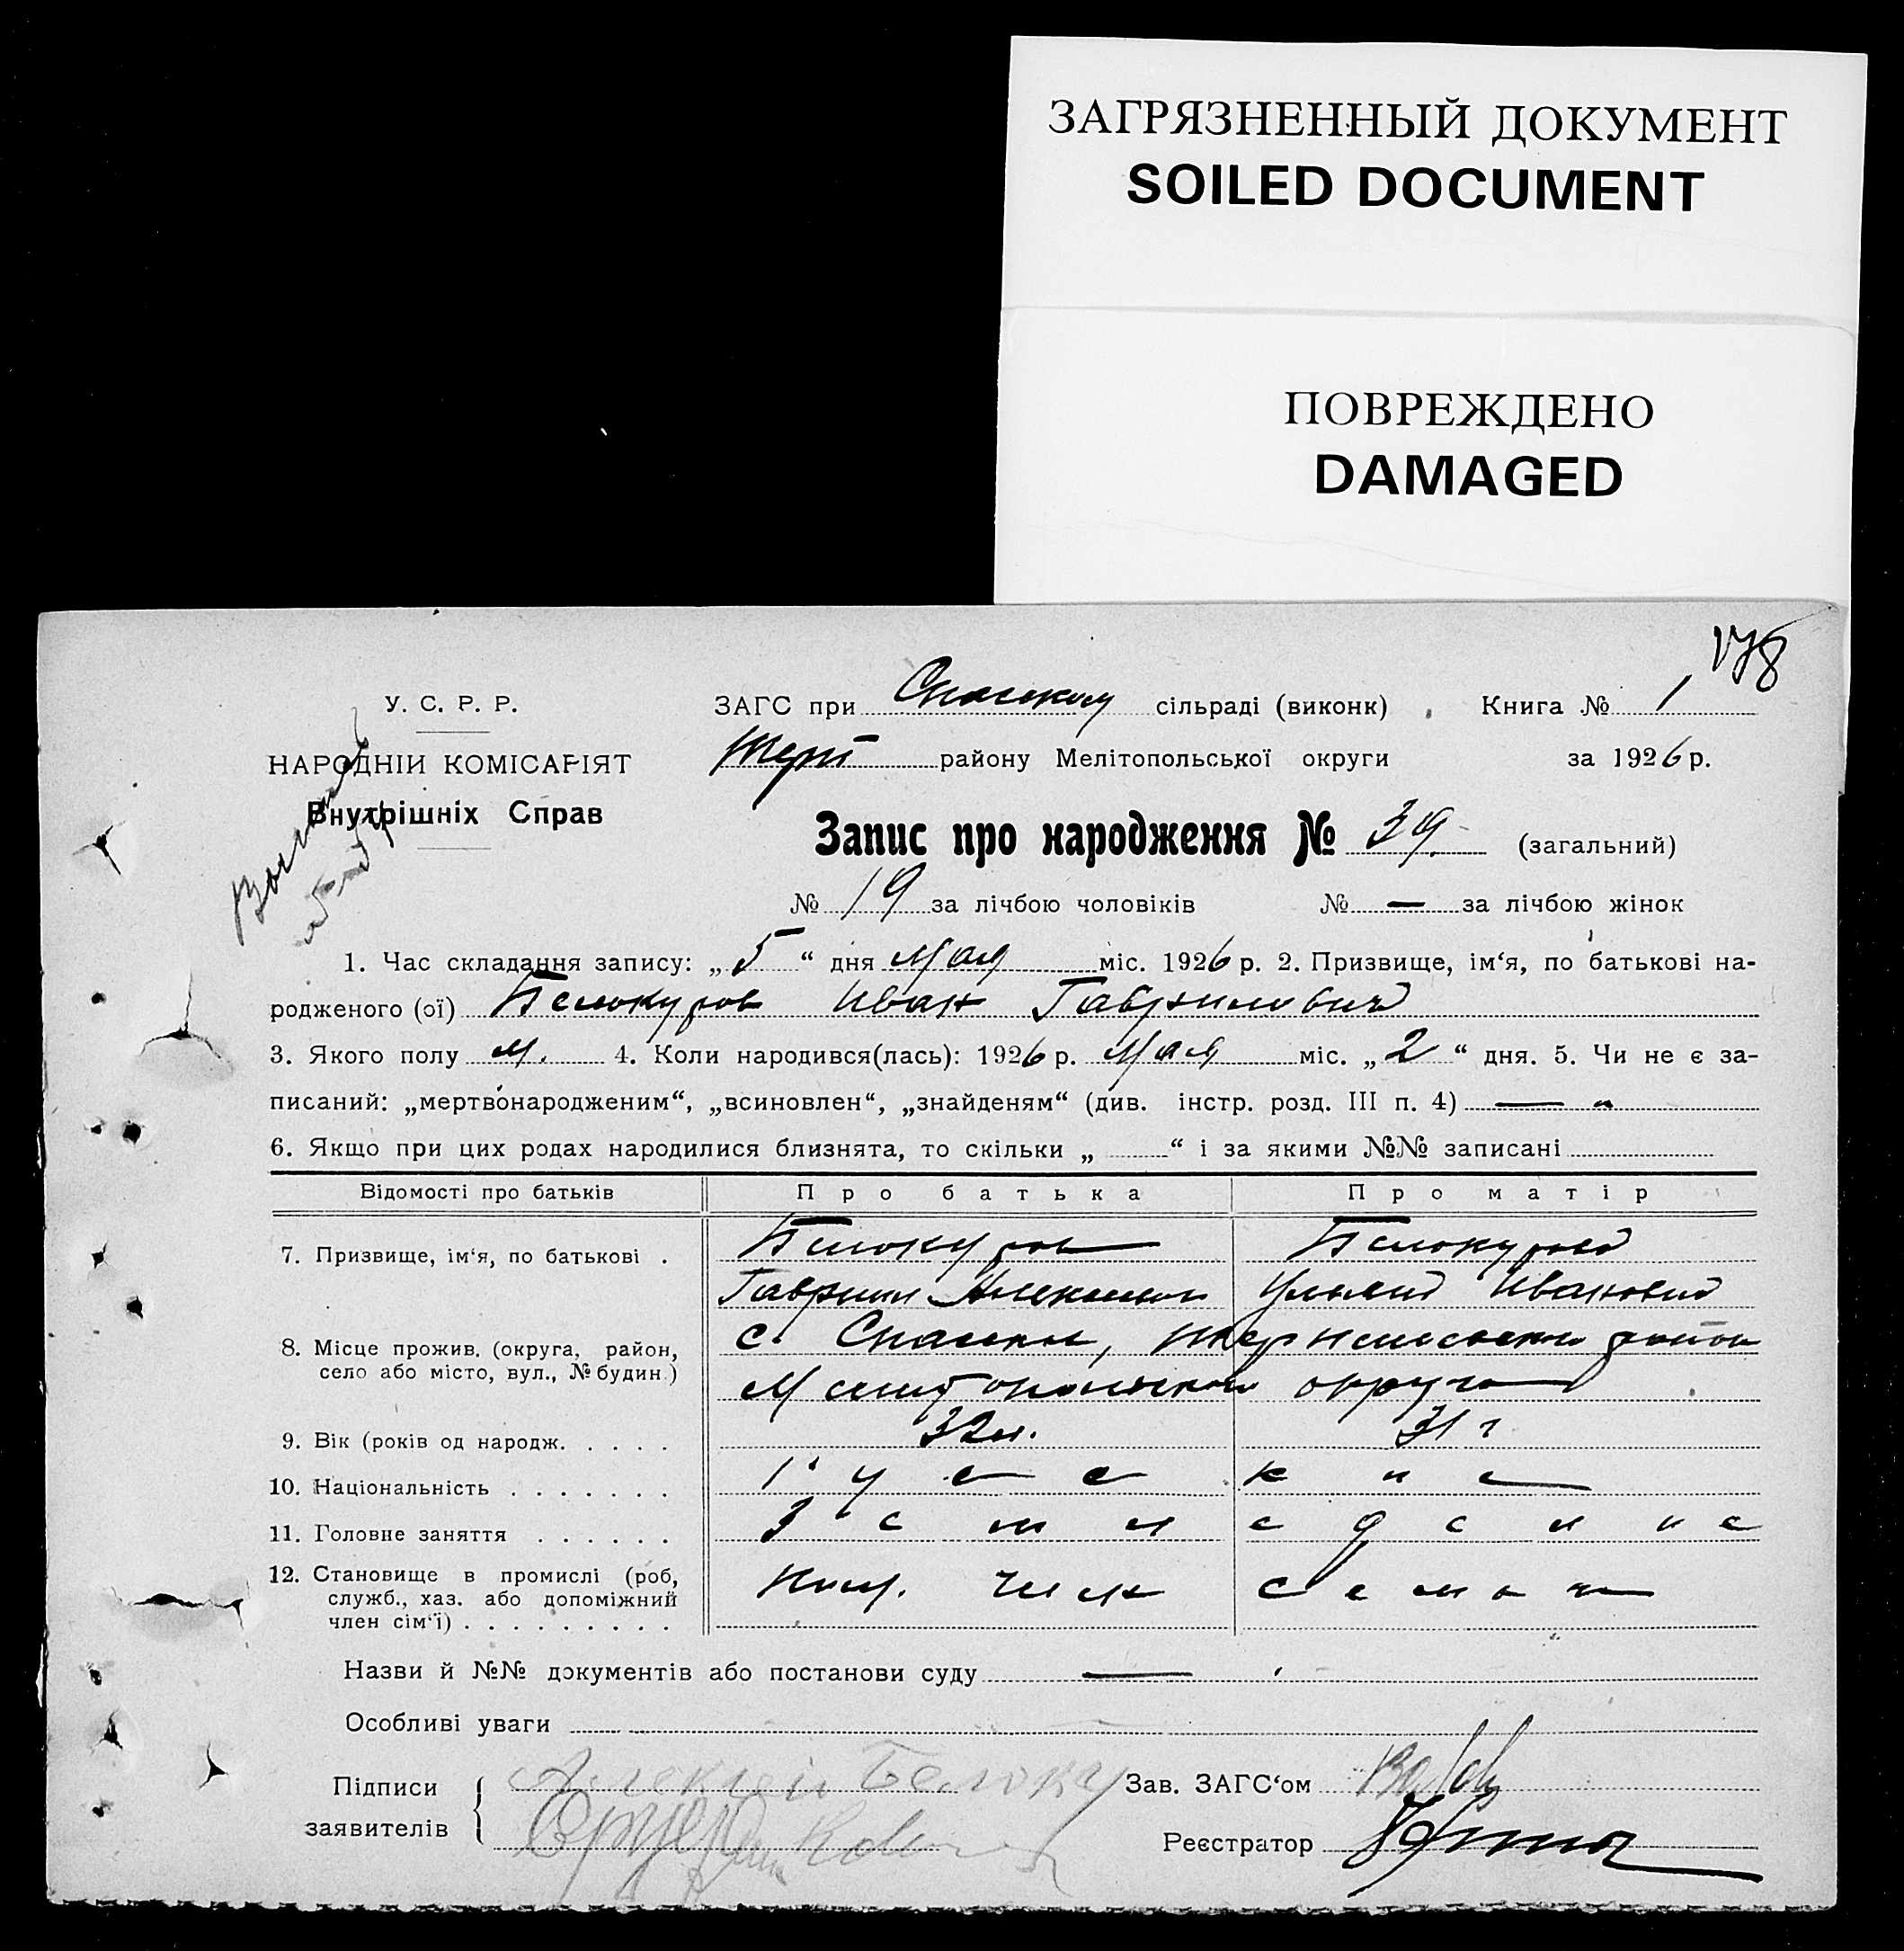 ЗАГРЯЗНЕННЫЙ ДОКУМЕНТ
SOILED DOCUMENT
ПОВРЕЖДЕНО
DAMAGED
178
У. С. Р. Р.
ЗАГС при Спаському сільраді (виконк) Книга № 1
НАРОДНІЙ КОМІСАРІЯТ
Терп району Мелітопольської округи за 1926 р.
Внутрішніх Справ
Запис про народження № 39 (загальний)
№ 19 за лічбою чоловіків № — за лічбою жінок
1. Час складання запису: „5“ дня Мая міс. 1926 р. 2. Призвище, ім‘я, по батькові на-
родженого (ої) Белокуров Иван Гаврилович
3. Якого полу м. 4. Коли народився(лась): 1926 р. Мая міс. „2“ дня. 5. Чи не є за-
писаний: „мертвонародженим“, „всиновлен“, „знайденям“ (див. інстр. розд. III п. 4) — „
6. Якщо при цих родах народилися близнята, то скільки „ “ і за якими №№ записані
Відомості про батьків Про батька Про матір
7. Призвище, ім‘я, по батькові . Белокуров Белокурова
Гавриил Алексеев Ульяна Ивановна
8. Місце прожив. (округа, район, село або місто, вул., № будин.) с. Спаское, Терпениевского район
Мелитопольской округа
9. Вік (років од народж. . . . . 32 л. 31 г
10. Національність . . . . . . . русские
11. Головне заняття . . . . . . Земледелие
12. Становище в промислі (роб,
служб., хаз. або допоміжний
член сім‘ї) . . . . . . . . . член семьи
Назви й №№ документів або постанови суду —
Особливі уваги
Підписи
заявителів
Алексей Белоку
Зав. ЗАГС‘ом
Реєстратор